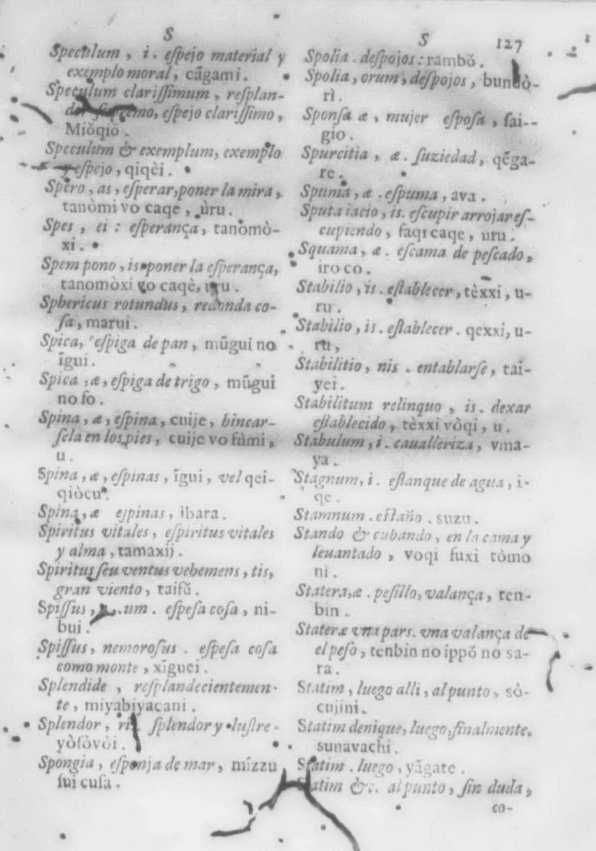 S
Speculum, i. espejo material y
exemplo moral, cāgami.
Speculum clarissimum, resplan-
espejo clarissimo,
Miòqiò.
Speculum & exemplum, exemplo
y espejo, qiqèi.
Spero, as, esperar, poner la mira,
tanòmi vo caqe, ùru.
Spes, ei: esperança, tanomò-
xi.
Spem pono, is poner la esperança,
tanomòxi vo caqè, uru.
Sphericus rotundus, redonda co-
sa, marui.
Spica, espiga de pan, mūgui no
īgui.
Spica, æ, espiga de trigo, mūgui
no fo.
Spina, æ, espina, cuije, hincar-
sela en los pies, cuije vo fùmi,
u.
Spina, æ, espinas, īgui, vel qei-
qiòcu.
Spina, æ espinas, ibara.
Spiritus vitales, espiritus vitales
y alma, tamaxij.
Spiritus seu ventus vehemens, tis,
gran viento, taifŭ.
Spissus, um. espesa cosa, ni-
bui.
Spissus, nemorosus. espesa cosa
como monte, xiguei.
Splendide, resplandecientemen-
te, miyabiyacani.
Splendor, ris splendor y lustre
yòsòvoi.
Spongia, esponja de mar, mizzu
sui cusa.
S 127
Spolia. despojos: rambŏ.
Spolia, orum, despojos, bundò-
ri.
Sponsa æ, mujer esposa, sai-
gio.
Spurcitia, æ. suziedad, qēga-
re.
Spuma, æ. espuma, ava.
Sputa iacio, is. escupir arrojar es-
cupiendo, faqi caqe, uru.
Squama, æ. escama de pescado,
iro co.
Stabilio, is. establecer, tèxxi, u-
ru.
Stabilio, is. establecer. qexxi, u-
ru,
Stabilitio, nis. entablarse, tai-
yei.
Stabilitum relinquo, is. dexar
establecido, tèxxi vòqi, u.
Stabulum, i. cavalleriza, vma-
ya.
Stagnum, i. estanque de agua, i-
qe.
Stamnum. estaño. suzu.
Stando & cubando, en la cama y
levantado, voqi fuxi tòmo
ni.
Statera, æ. pesillo, valança, ten-
bin.
Stateræ vna pars. vna valança de
el peso, tenbin no ippŏ no sa-
ra.
Statim, luego alli, al punto, sò-
cujini.
Statim denique, luego, finalmente.
sunavachi.
Statim. luego, yāgate.
Statim &c. al punto, sin duda,
co-